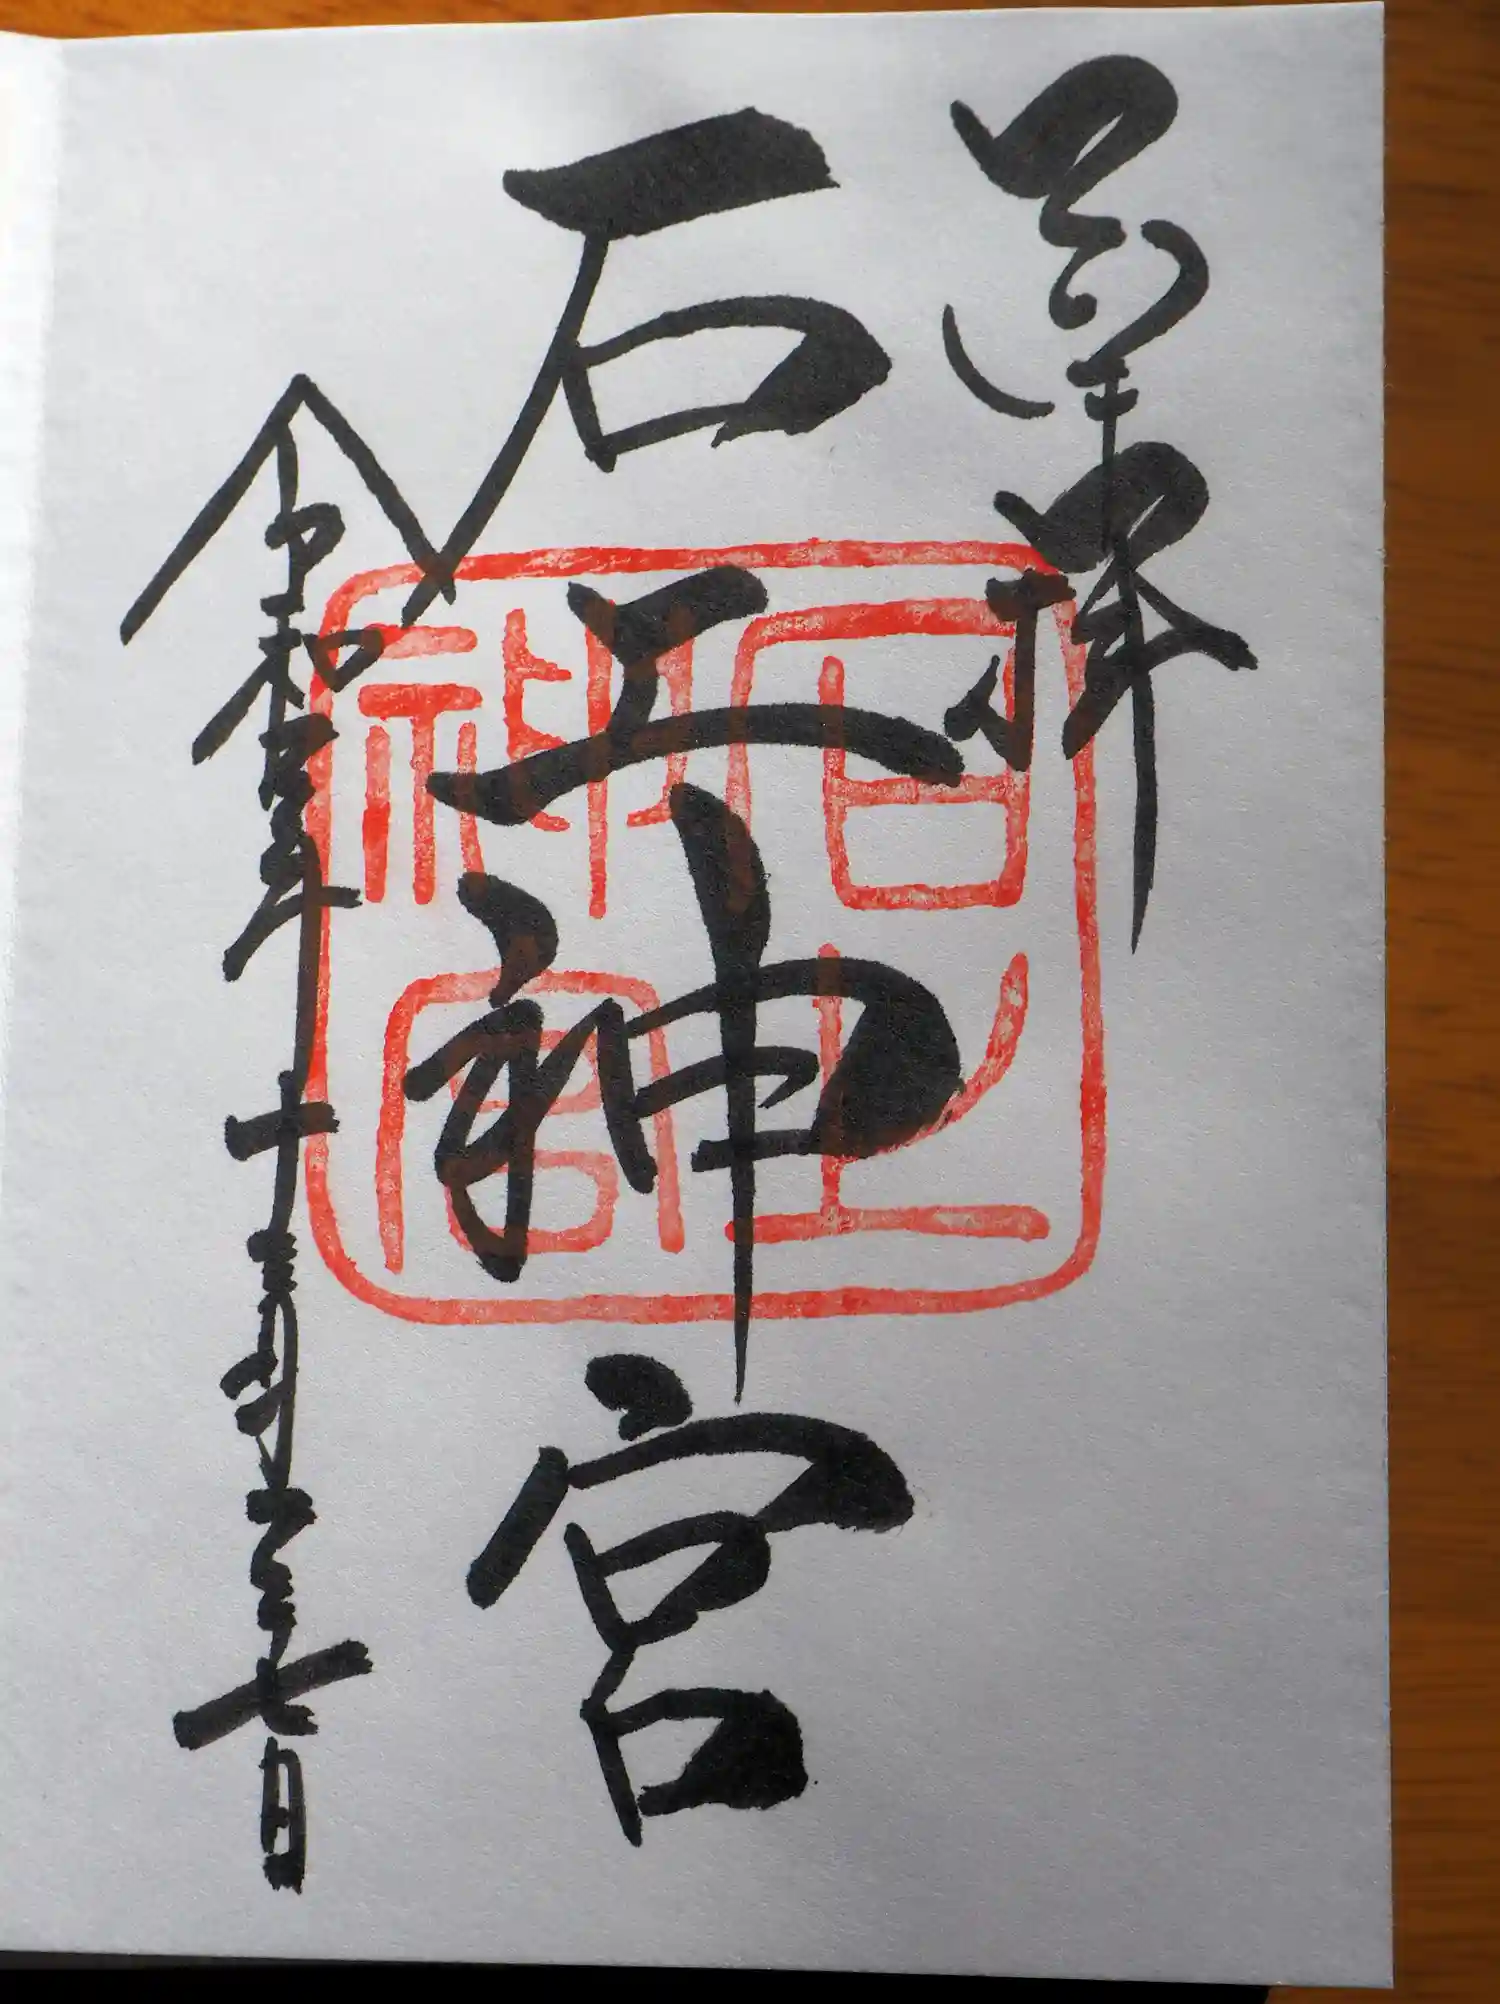 奉拝
石上神宮
令和五年十二月二十七日
石上神宮